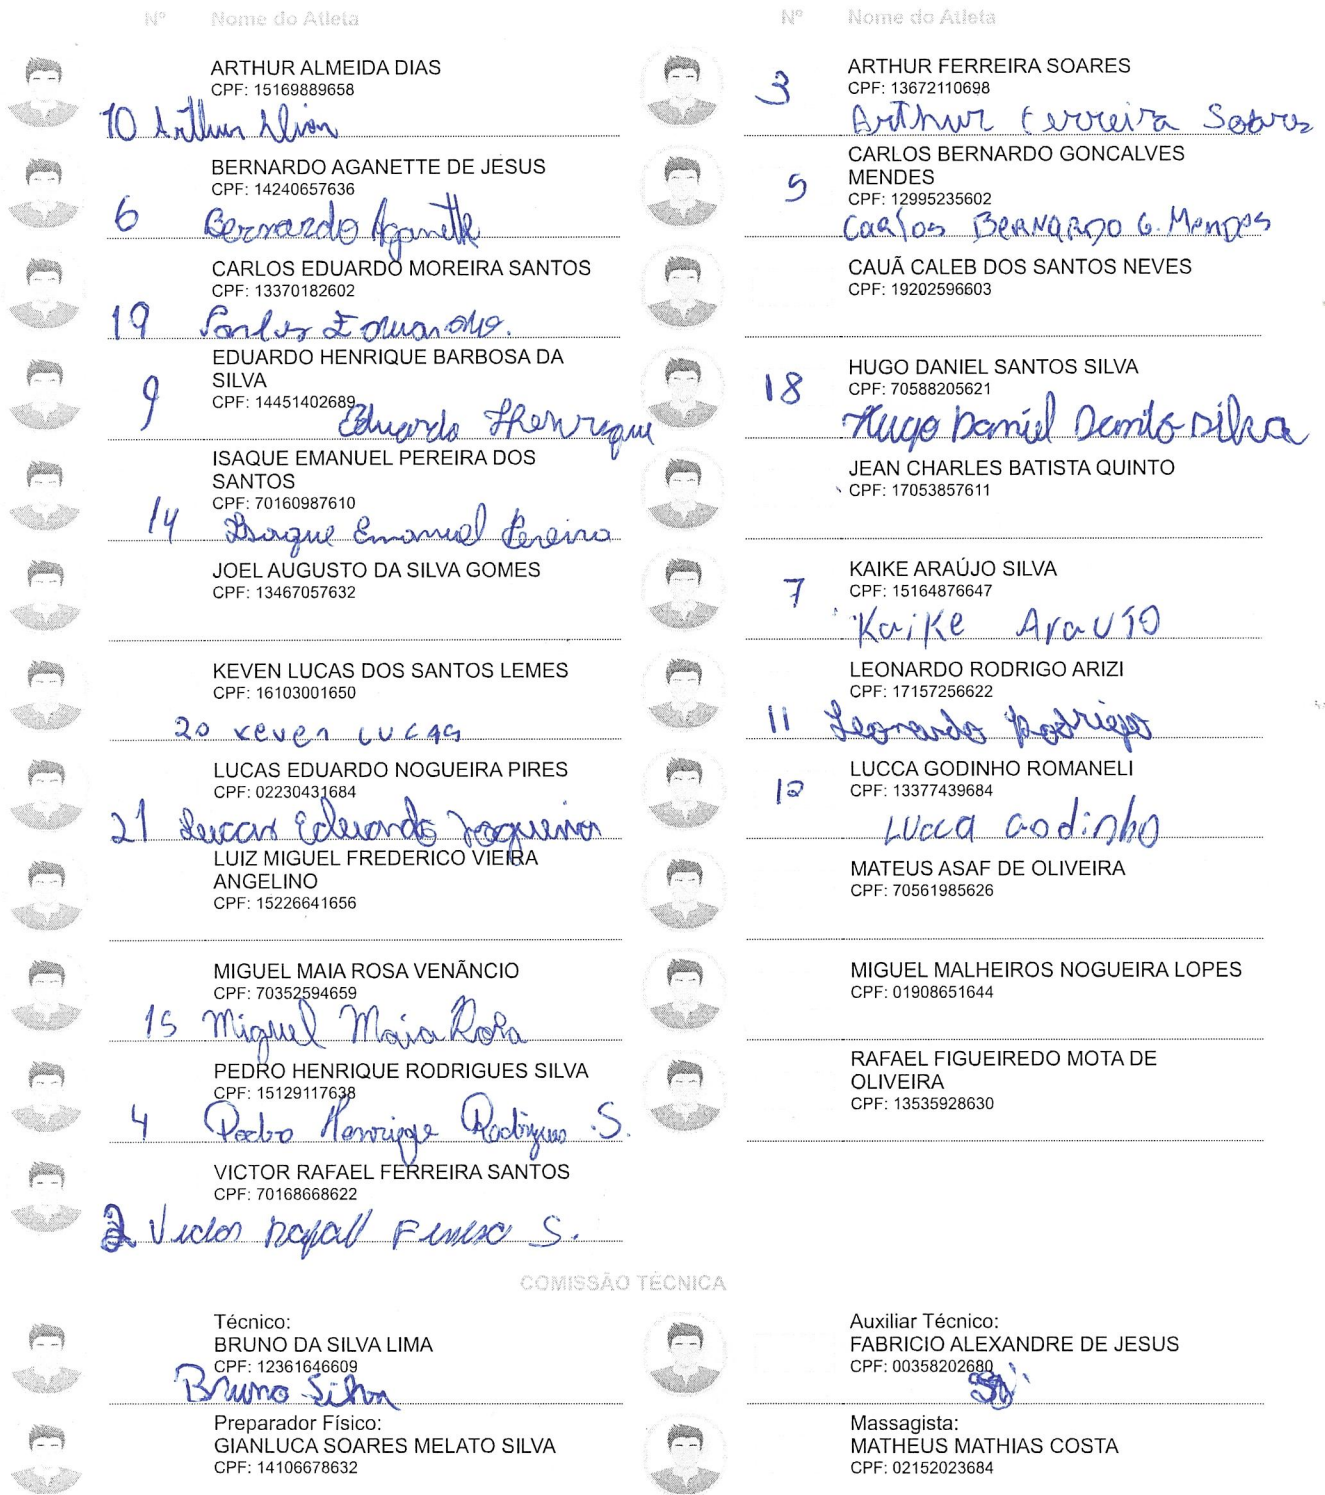 Nº Nome do Atleta
ARTHUR ALMEIDA DIAS
CPF: 15169889658
10 Arthur Dias
BERNARDO AGANETTE DE JESUS
CPF: 14240657636
6 Bernardo Aganette
CARLOS EDUARDO MOREIRA SANTOS
CPF: 13370182602
19 Carlos Eduardo.
EDUARDO HENRIQUE BARBOSA DA
SILVA
CPF: 14451402689
9 Eduardo Henrique
ISAQUE EMANUEL PEREIRA DOS
SANTOS
CPF: 70160987610
14 Isaque Emanuel Pereira
JOEL AUGUSTO DA SILVA GOMES
CPF: 13467057632
KEVEN LUCAS DOS SANTOS LEMES
CPF: 16103001650
20 keven LUCAS
LUCAS EDUARDO NOGUEIRA PIRES
CPF: 02230431684
21 Lucas Eduardo Nogueira
LUIZ MIGUEL FREDERICO VIEIRA
ANGELINO
CPF: 15226641656
MIGUEL MAIA ROSA VENÂNCIO
CPF: 70352594659
15 Miguel Maia Rosa
PEDRO HENRIQUE RODRIGUES SILVA
CPF: 15129117638
4 Pedro Henrique Rodrigues .S.
VICTOR RAFAEL FERREIRA SANTOS
CPF: 70168668622
2 Victor Rafael S.
Nº Nome do Atleta
ARTHUR FERREIRA SOARES
CPF: 13672110698
3 Arthur Ferreira Soares
CARLOS BERNARDO GONCALVES
MENDES
CPF: 12995235602
5 Carlos BERNARDO G. Mendes
CAUÃ CALEB DOS SANTOS NEVES
CPF: 19202596603
HUGO DANIEL SANTOS SILVA
CPF: 70588205621
18 Hugo Daniel Santos Silva
JEAN CHARLES BATISTA QUINTO
CPF: 17053857611
KAIKE ARAÚJO SILVA
CPF: 15164876647
7 Kaike Araujo
LEONARDO RODRIGO ARIZI
CPF: 17157256622
11 Leonardo Rodrigo
LUCCA GODINHO ROMANELI
CPF: 13377439684
12 Lucca Godinho
MATEUS ASAF DE OLIVEIRA
CPF: 70561985626
MIGUEL MALHEIROS NOGUEIRA LOPES
CPF: 01908651644
RAFAEL FIGUEIREDO MOTA DE
OLIVEIRA
CPF: 13535928630
COMISSÃO TÉCNICA
Técnico:
BRUNO DA SILVA LIMA
CPF: 12361646609
Bruno Silva
Auxiliar Técnico:
FABRICIO ALEXANDRE DE JESUS
CPF: 00358202680
Preparador Físico:
GIANLUCA SOARES MELATO SILVA
CPF: 14106678632
Massagista:
MATHEUS MATHIAS COSTA
CPF: 02152023684